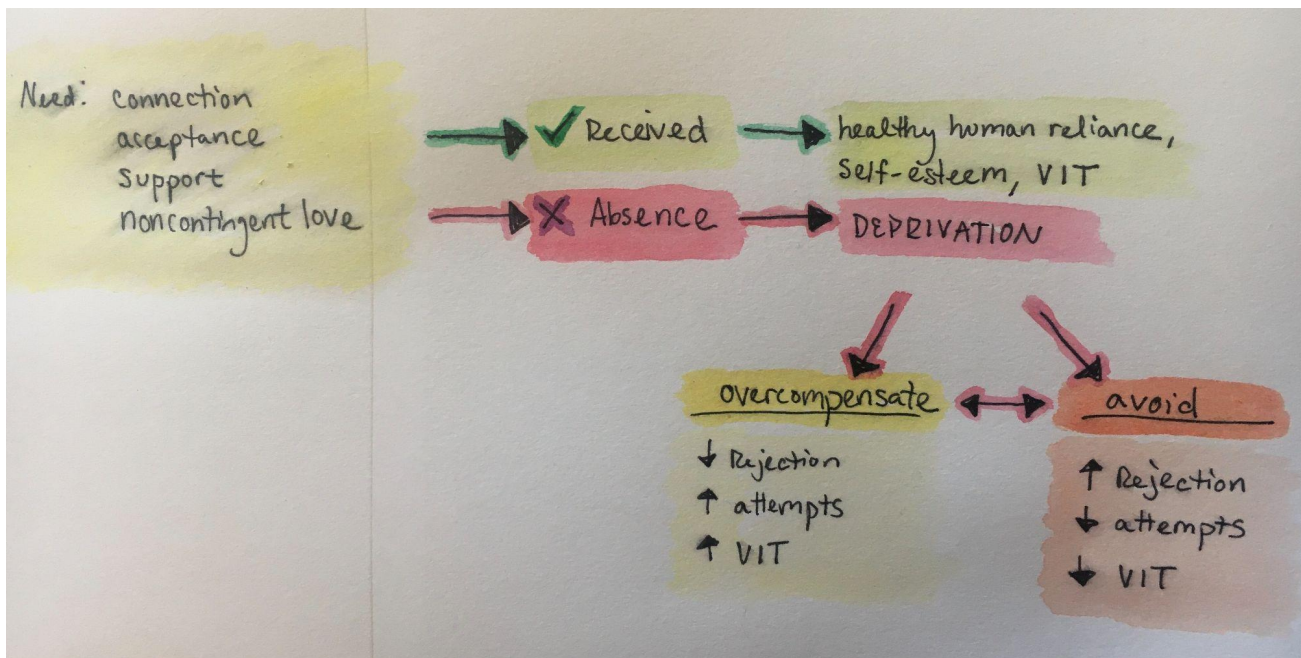 Need: connection
acceptance
support
noncontingent love
✓ Received
healthy human reliance,
self-esteem, VIT
X Absence
DEPRIVATION
overcompensate
↓ Rejection
↑ attempts
↑ VIT
avoid
↑ Rejection
↓ attempts
↓ VIT